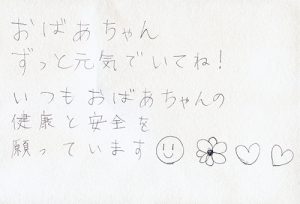 おばあちゃん
ずっと元気でいてね!
いつもおばあちゃんの
健康と安全を
願っています